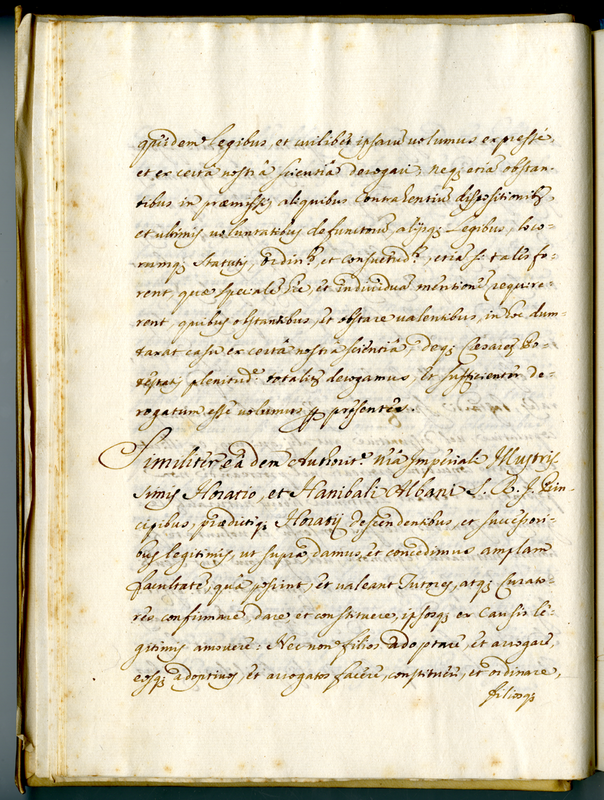 quidem legibus, et cuilibet ipsarũ volumus expressè,
et ex certâ nostrâ scientiâ derogari; neq; etiã obstan-
tibus in præmissis aliquibus Contrahentiũ dispositionib;
et ultimis voluntatibus defunctorũ, alijsq; Legibus, loco=
rumq; statutis, Ordin.b; et consuetud.b;, etiã si talès fo=
rent, quæ specialẽ hic, et individuã mentionẽ require=
rent, quibus obstantibus, et obstare valentibus, in hoc dum=
taxat casu ex certâ nostrâ scientiâ, deq; Cæsareę Po=
testatis plenitud.e totalit.r derogamus, et sufficienter de=
rogatum esse volumus p presentes.
Similiter eâdem Authorit.e Nrâ Imperiale Illustris=
simis Horatio, et Hanibali Albani S. R. I. Prin=
cipibus, prædictiq; Horatij descendentibus, et successori=
bus legitimis, ut supra, damus, et concedimus amplam
facultatẽ, quâ possint, et valeant Tutores, atq; Curato=
res confirmare, dare, et constituere, ipsosq; ex Causis le=
gitimis amovere: Necnon filios adoptare, et arrogare,
eosq; adoptivos, et arrogatos facere, constituere, et ordinare,
filiosq;